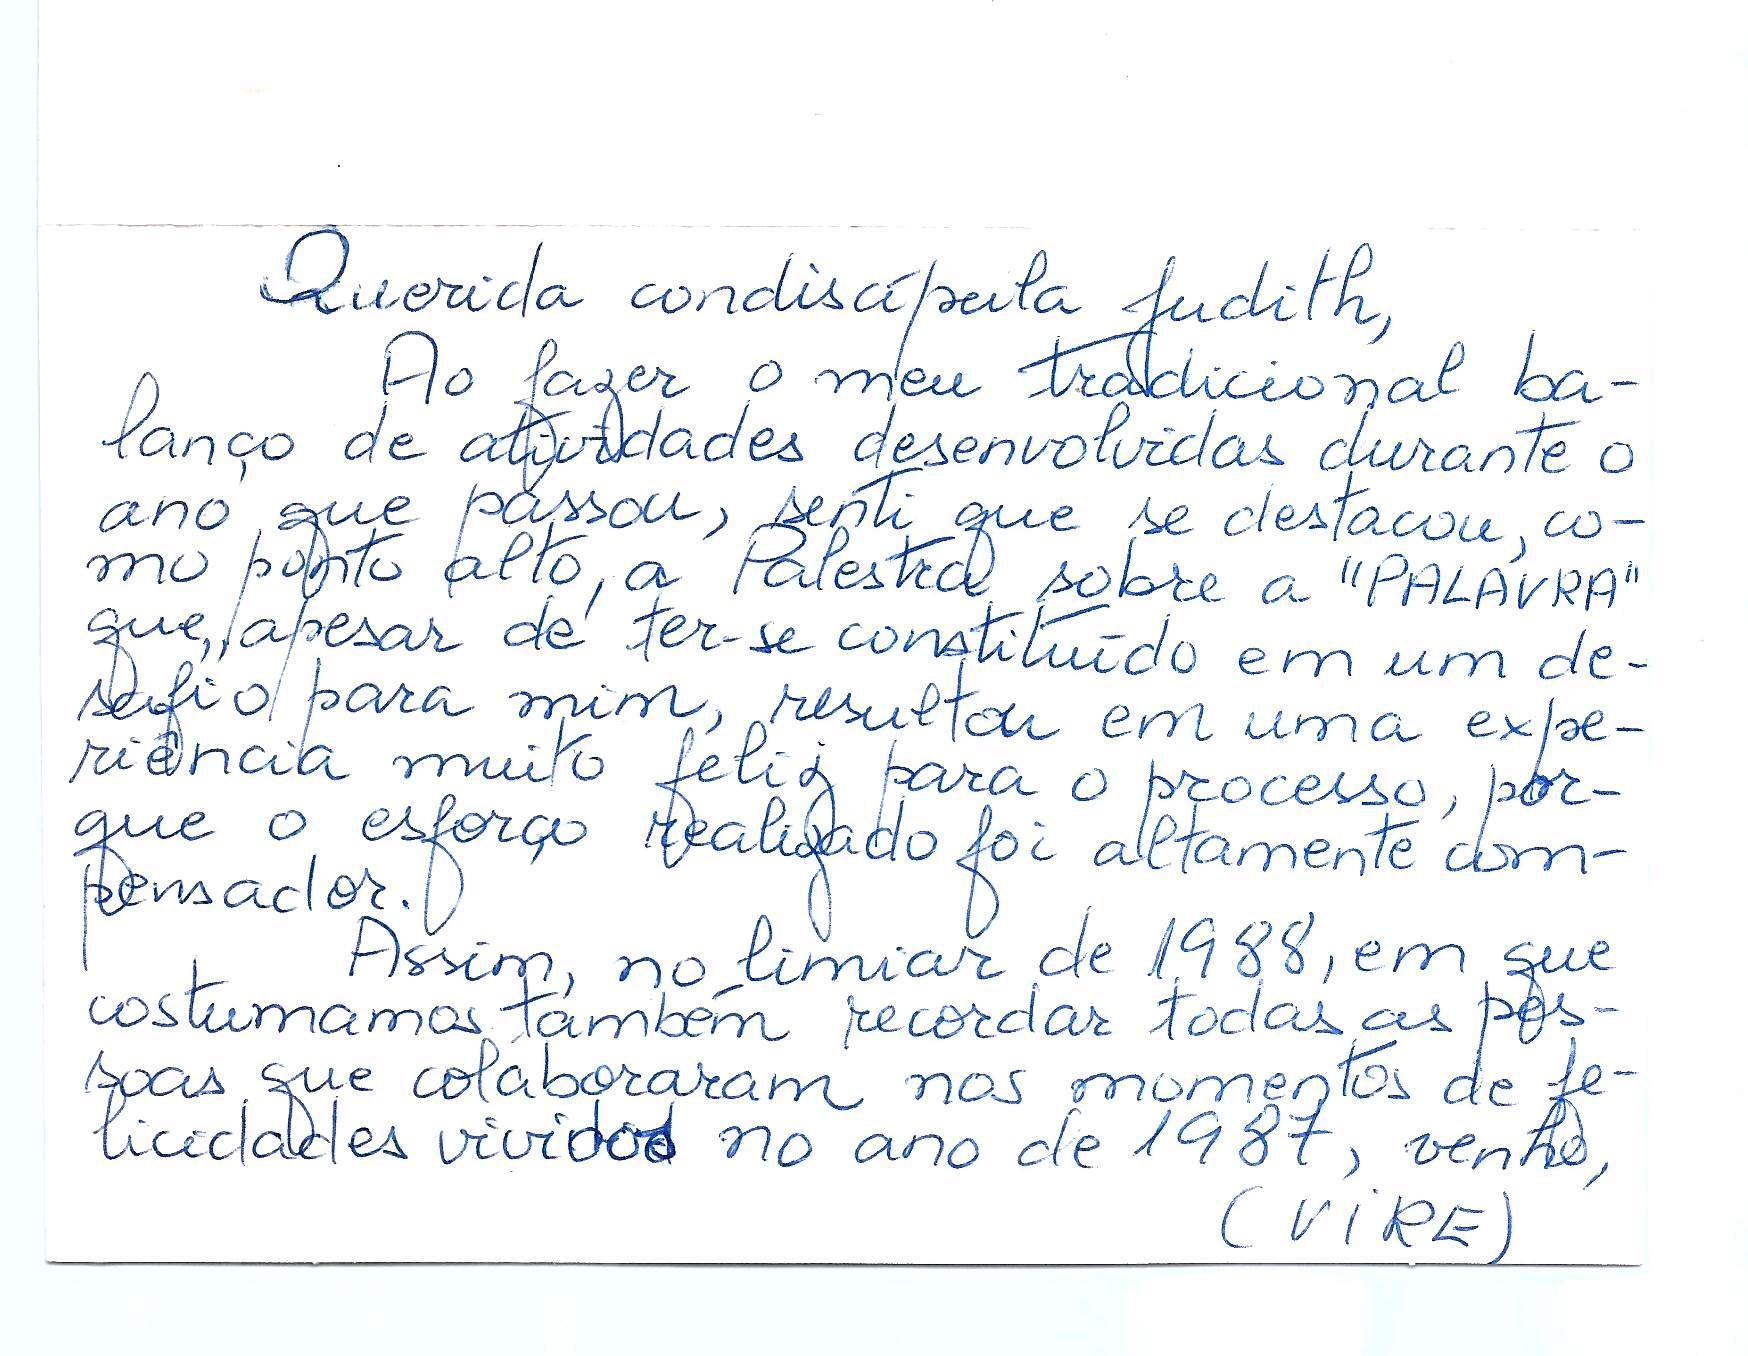 Querida condiscípula Judith,
Ao fazer o meu tradicional ba-
lanço de atividades desenvolvidas durante o
ano que passou, senti que se destacou, co-
mo ponto alto, a Palestra sobre a "PALAVRA"
que, apesar de ter-se constituído em um de-
safio para mim, resultou em uma expe-
riência muito feliz para o processo, por-
que o esforço realizado foi altamente com-
pensador.
Assim, no limiar de 1988, em que
costumamos também recordar todas as pes-
soas que colaboraram nos momentos de fe-
licidades vividos no ano de 1987, venho,
(ViRE)